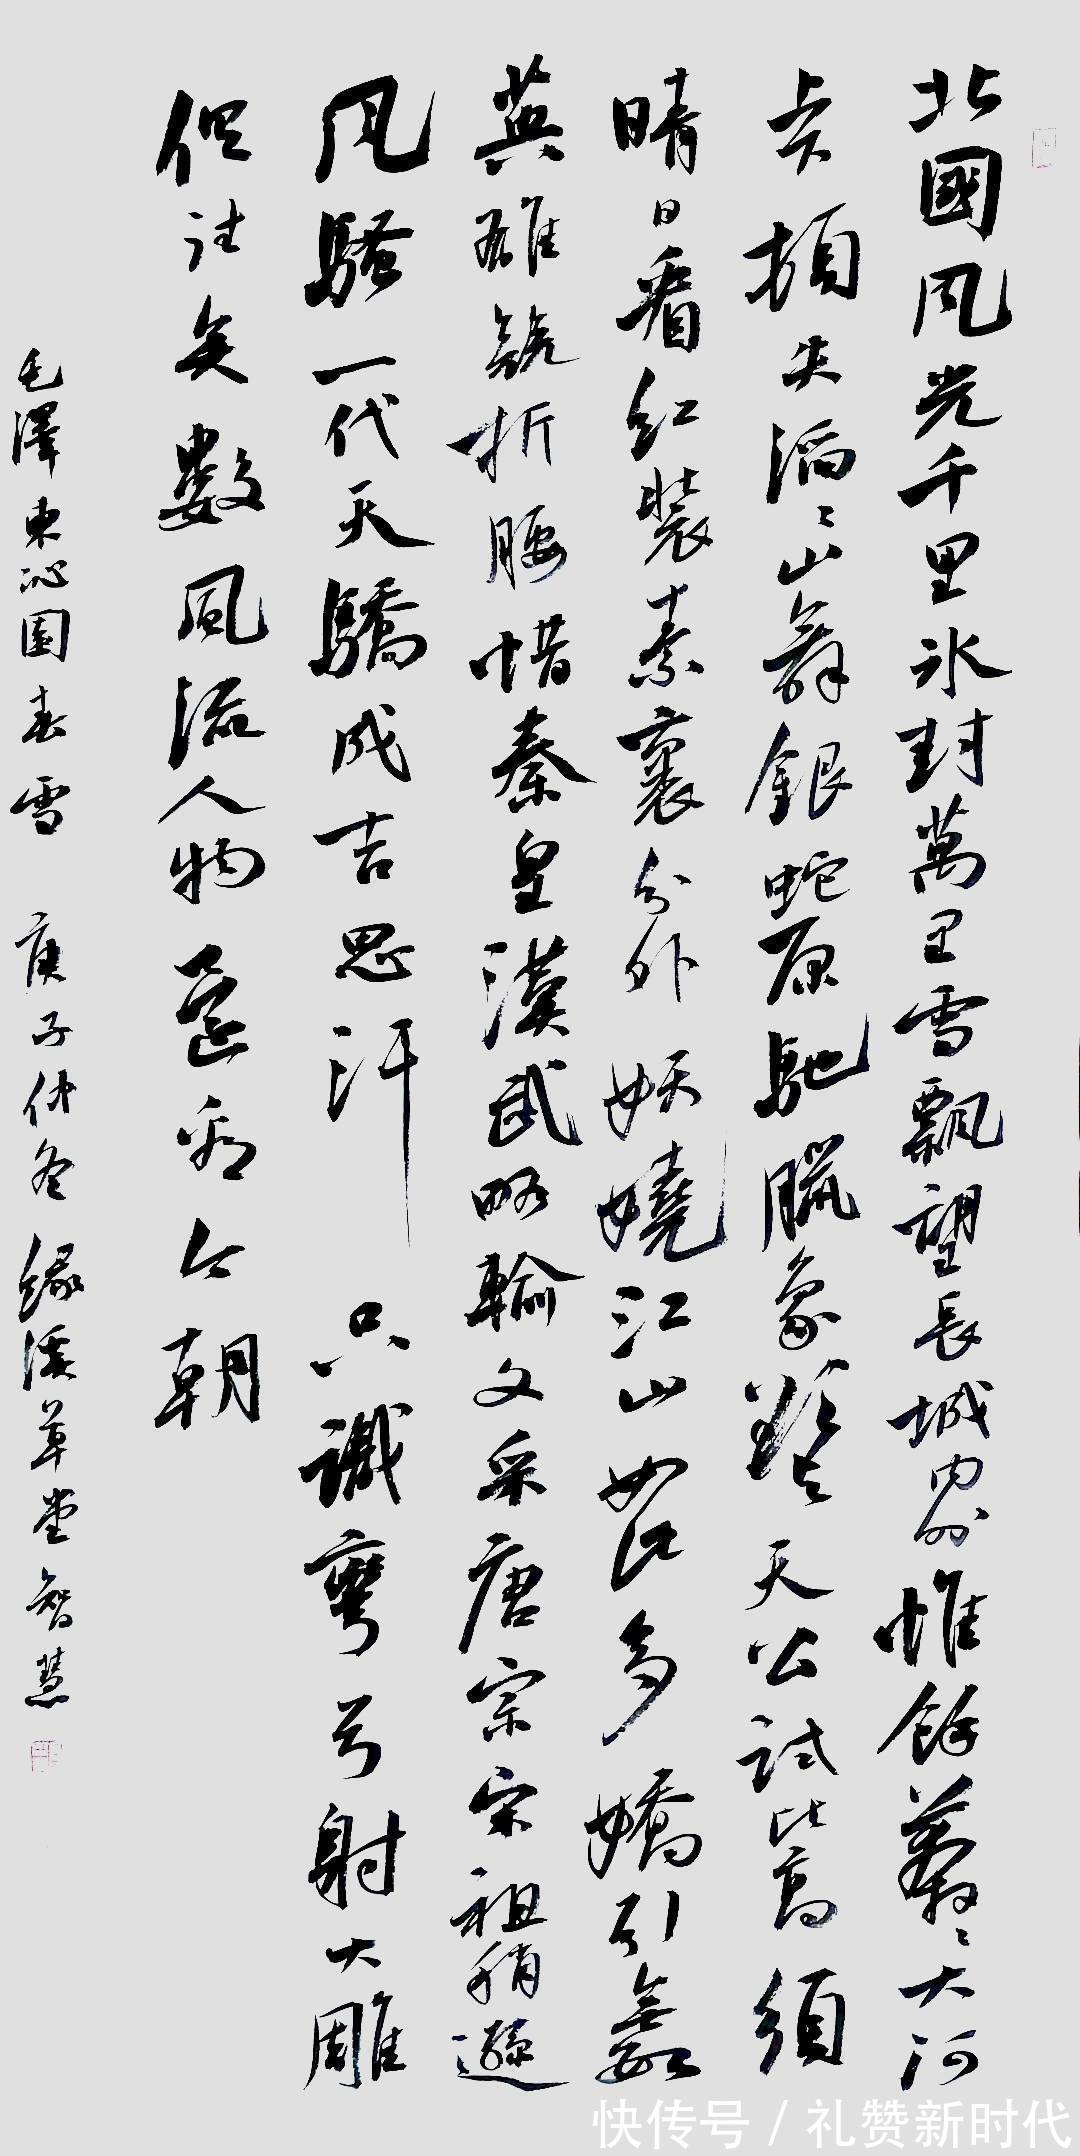 北國風光千里冰封萬里雪飄望長城内外惟餘莽〻大河
上下頓失滔〻山舞銀蛇原馳臘象欲與天公試比高須
晴日看紅裝素裹分外妖嬈江山如此多嬌引無數
英雄競折腰惜秦皇漢武略輸文采唐宗宋祖稍遜
風騷一代天驕成吉思汗只識彎弓射大雕
俱往矣數風流人物還看今朝
毛澤東沁園春雪 庚子仲冬 緣溪草堂智慧
快传号 / 礼赞新时代